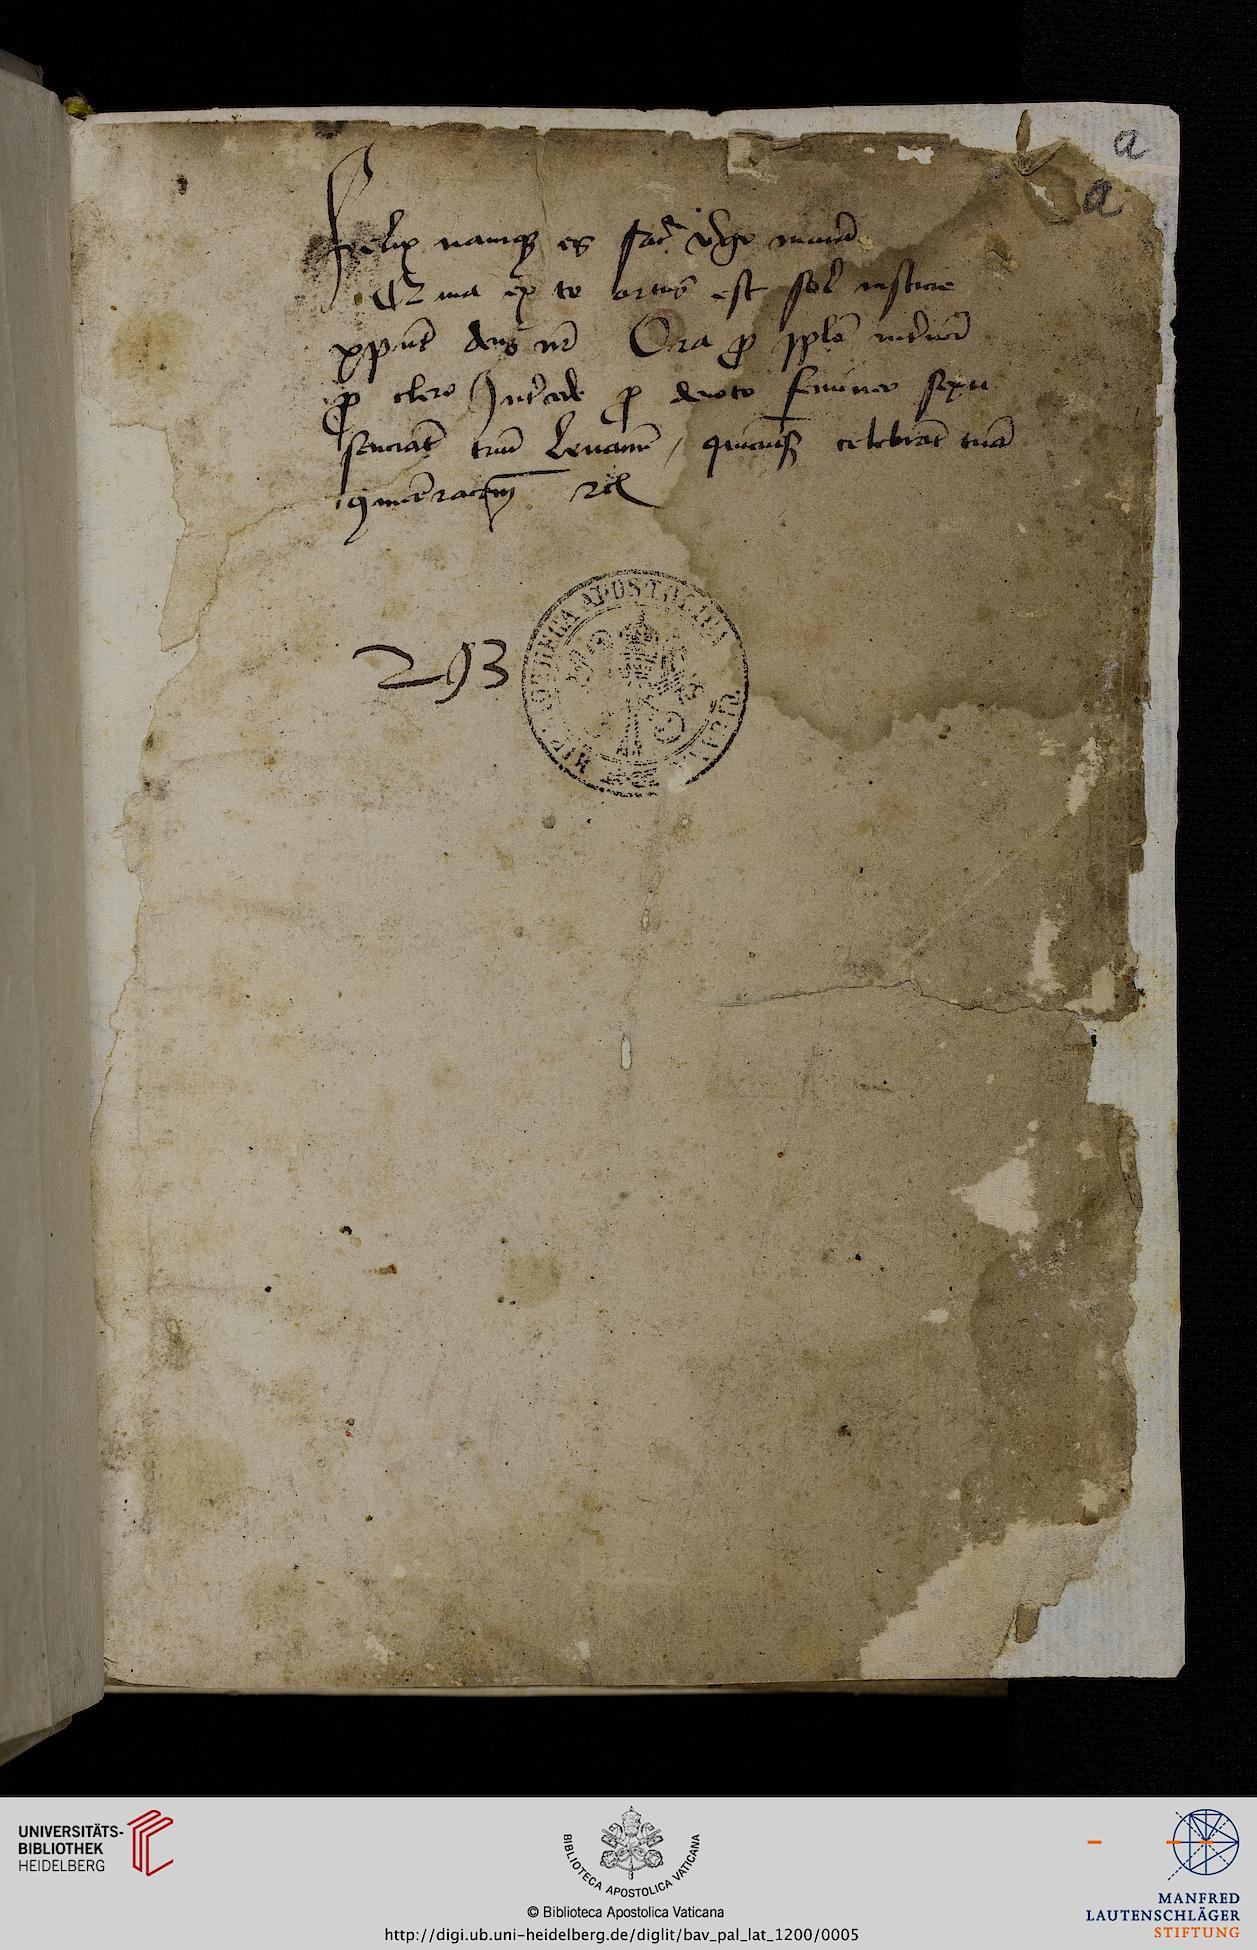 a
a
Felix namq es sac v̄go maria
Qz ma ex te ortus est sol iusticie
xpus deus nr̄ Ora p pplo int̄ueī
p clero Int̄cede p deuoto femineo sexu
senciāt tuū leuamē / quicuqz celebrāt tuā
gmēracōm rcl
293
BIBLIOTHECA APOSTOLICA VATICANA
UNIVERSITÄTS-
BIBLIOTHEK
HEIDELBERG
BIBLIOTECA APOSTOLICA VATICANA
© Biblioteca Apostolica Vaticana
http://digi.ub.uni-heidelberg.de/diglit/bav_pal_lat_1200/0005
MANFRED
LAUTENSCHLÄGER
STIFTUNG